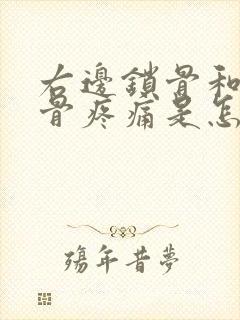 右邊鎖骨和
骨疼痛是怎
殤年昔夢